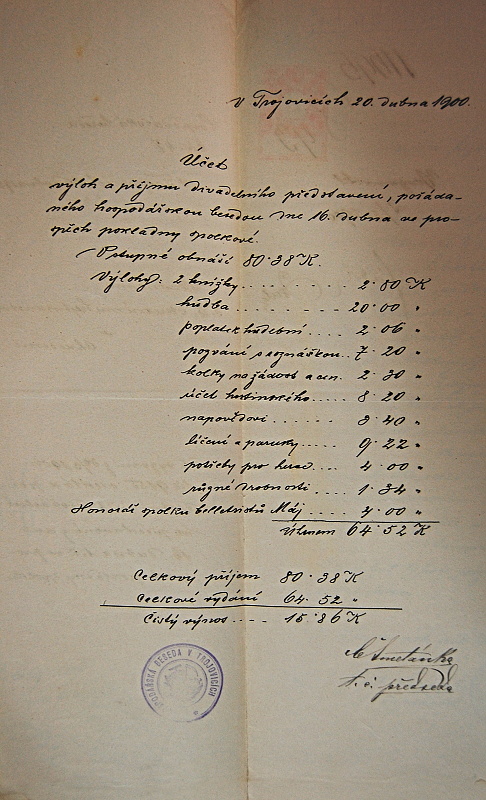 v Trojovicích 20. dubna 1900.
Účet
výloh a příjmu divadelního představení, pořáda-
ného hospodářskou besedou dne 16. dubna ve pro-
spěch pokladny spolkové.
Vstupné obnáší 80·38 K.
Výlohy: 2 knížky . . . . . . . . 2·80 K
hudba . . . . . . . . 20·00 "
poplatek hudební . . . . 2·06 "
pozvání s roznáškou . . 7·20 "
kolky na žádost a cen. 2·30 "
účet hostinského . . . . 8·20 "
napovědovi . . . . 3·40 "
líčení a paruky . . . . . 9·22 "
potřeby pro herce . . . . 4·00 "
různé drobnosti . . . . 1·34 "
Honorář spolku belletristů Máj . . . . 4·00 "
Úhrnem 64·52 K
Celkový příjem 80·38 K
Celkové vydání 64·52 "
Čistý výnos . . . . 15·86 K
HOSPODÁŘSKÁ BESEDA V TROJOVICÍCH
Smetánka
předseda